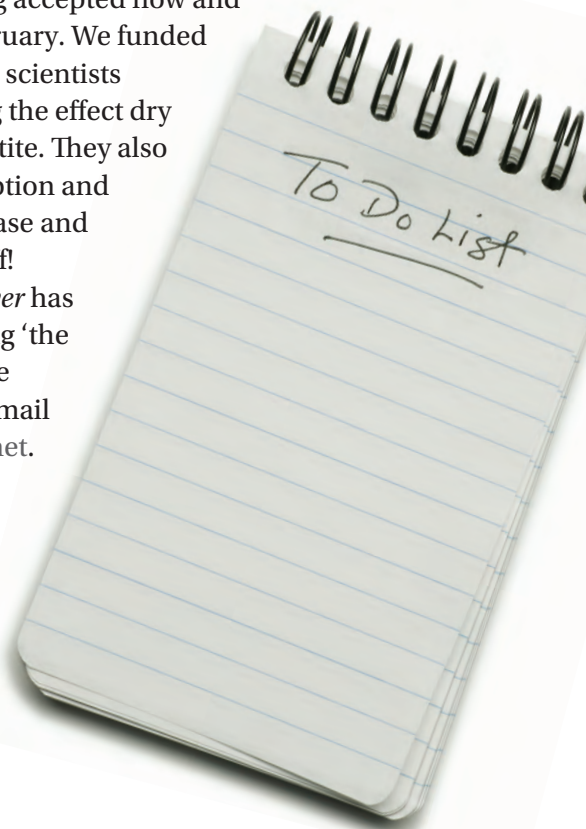 accepted now and
ruary. We funded
scientists
the effect dry
tite. They also
ption and
ase and
f!
er has
g ‘the
e
mail
net.
To Do List